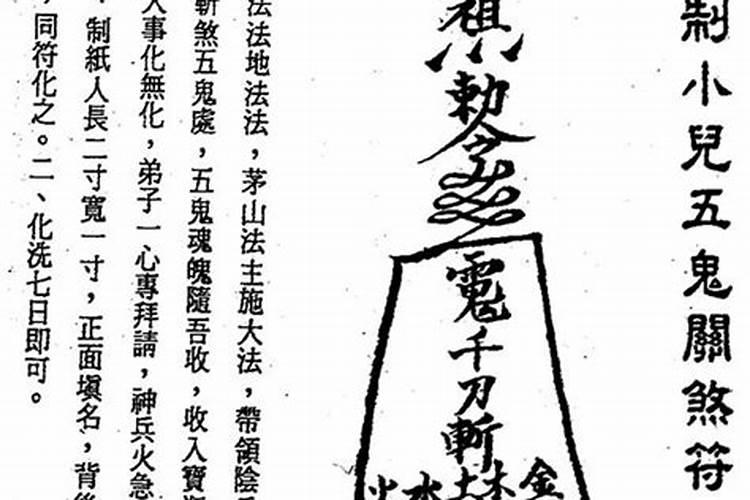 制小兒五鬼關煞符
祖
勅令
千刀斬
金木土水火
法法地法法，茅山法主施大法，帶領陰
斬煞五鬼處，五鬼魂魄隨吾收，收入寶
人事化無化，弟子一心專拜請，神兵火急
制紙人長二寸寬一寸，正面填名，背後
，同符化之。二、化洗七日即可。